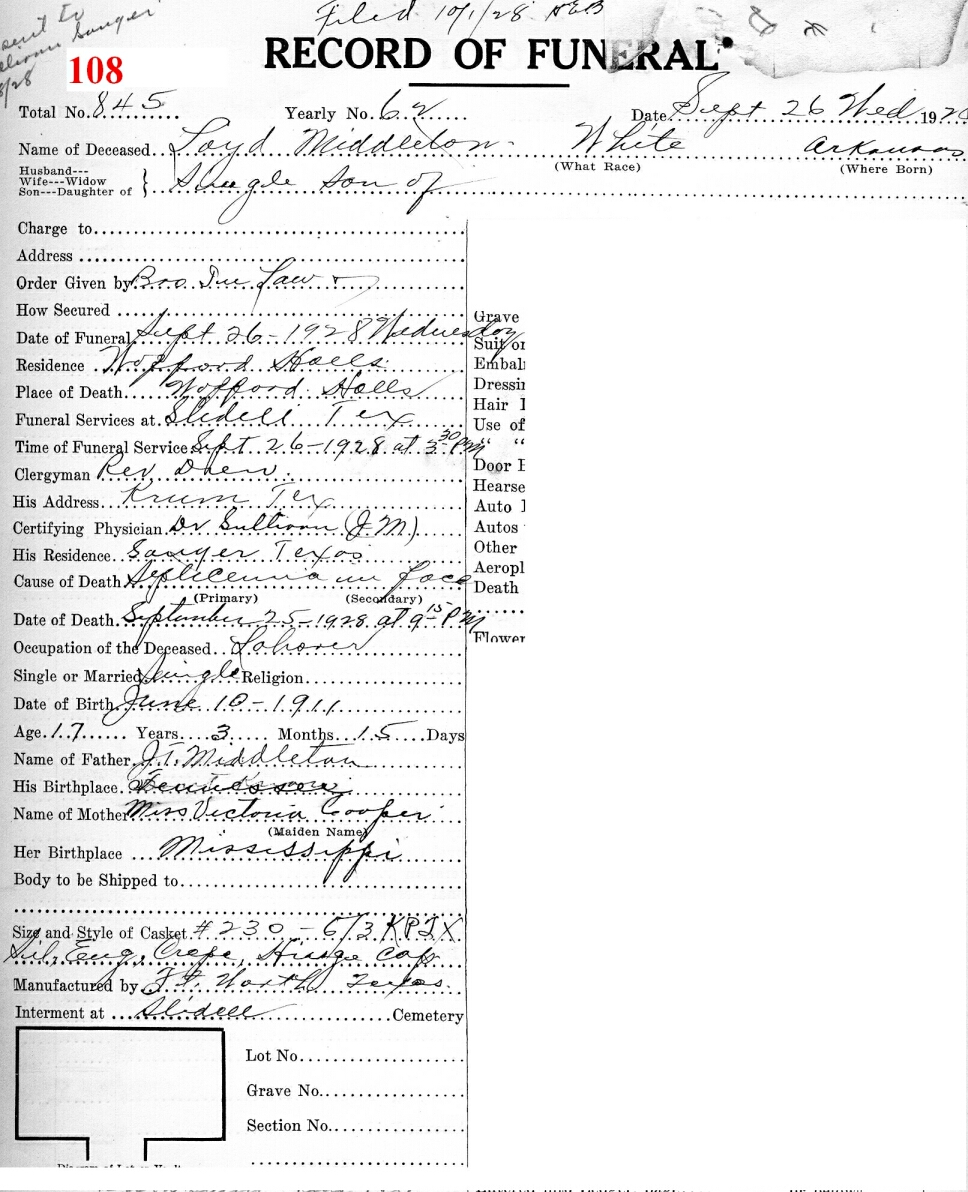 Filed 10/1/28
sent to
Sanger
108
RECORD OF FUNERAL
Total No. 845 Yearly No. 62 Date Sept 26 Wed 192
Name of Deceased Loyd Middleton White Arkansas
(What Race) (Where Born)
Husband---
Wife---Widow
Son---Daughter of } Single Son of
Charge to
Address
Order Given by Bro Inn Law
How Secured
Date of Funeral Sept 26-1928 Wednesday
Residence Wofford Halls
Place of Death Wofford Halls
Funeral Services at Slidell Tex
Time of Funeral Service Sept 26-1928 at 3 30 PM
Clergyman Rev Drew
His Address Krum Tex
Certifying Physician Dr Sullivan (J.M.)
His Residence Sanger Texas
Cause of Death Septicemia face
(Primary) (Secondary)
Date of Death September 25-1928 at 9 15 PM
Occupation of the Deceased Laborer
Single or Married Single Religion
Date of Birth June 10-1911
Age 17 Years 3 Months 15 Days
Name of Father J.T. Middleton
His Birthplace
Name of Mother Miss Victoria Cooper
(Maiden Name)
Her Birthplace Mississippi
Body to be Shipped to
Size and Style of Casket #230-6/3
Sil. Eng. Crepe, Hinge Cap
Manufactured by Ft. Worth Texas
Interment at Slidell Cemetery
Lot No.
Grave No.
Section No.
Grave
Suit or
Embal
Dressi
Hair
Use of
" "
Door
Hearse
Auto
Autos
Other
Aeropl
Death
Flower